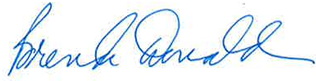 Brenda Donald